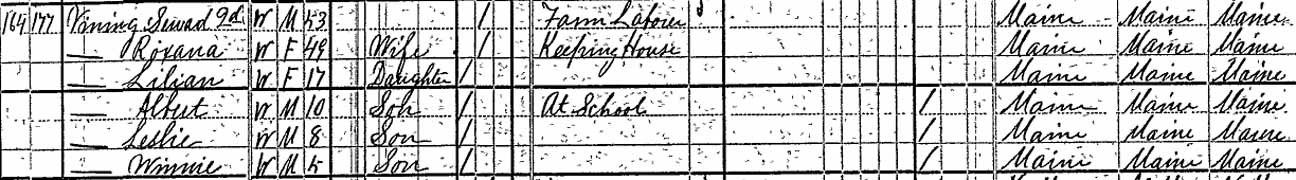 164 177 Vining Seward 2d W M 53 / Farm Laborer Maine Maine Maine
— Roxana W F 49 Wife / Keeping House Maine Maine Maine
— Lilian W F 17 Daughter / Maine Maine Maine
— Albert W M 10 Son / At School / Maine Maine Maine
— Leslie W M 8 Son / / Maine Maine Maine
— Winnie W M 5 Son / / Maine Maine Maine